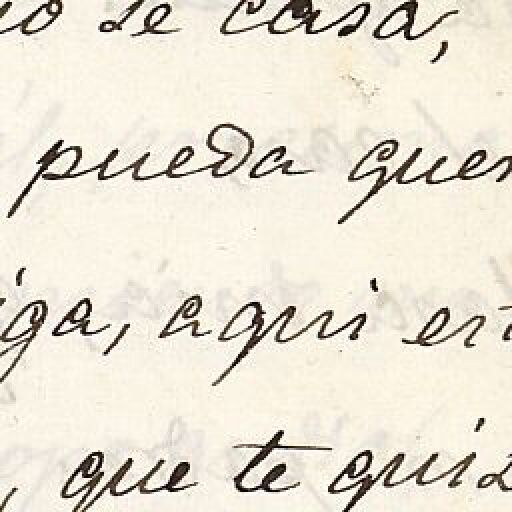 no se casa,
pueda quer
iga, aqui est
, que te quiz